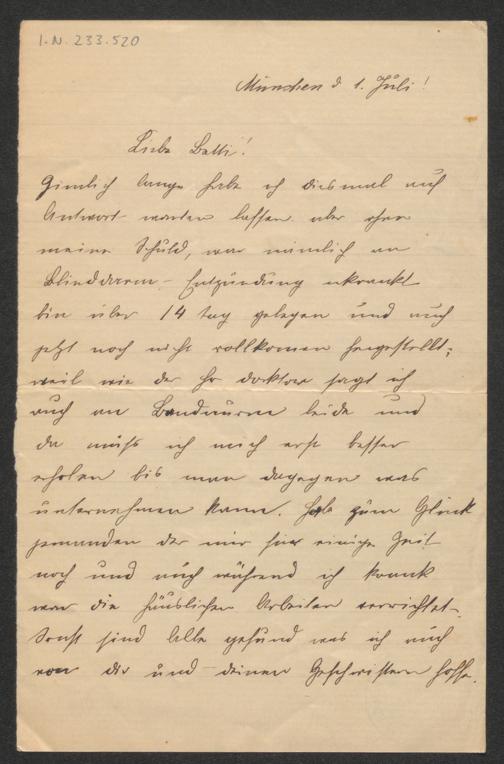 I.N. 233.520
München d 1. Juli!
Liebe Betti!
Zimlich lange habe ich diesmal auf
Antwort warten lassen aber ohne
meine Schuld, war nämlich an
Blinddarm-Entzündung erkrankt
bin über 14 tag gelegen und auch
jetzt noch nicht vollkomen hergestellt;
weil wie der Hr doktor sagt ich
auch an Bandwurm leide und
da muß ich mich erst besser
erholen bis man dagegen was
unternehmen kann. Hab zum Glück
jemanden der mir hier einige Zeit
noch und auch während ich krank
war die häuslichen Arbeiten verrichtet.
Sonst sind Alle gesund was ich auch
von dir und deinen Geschwistern hoffe.